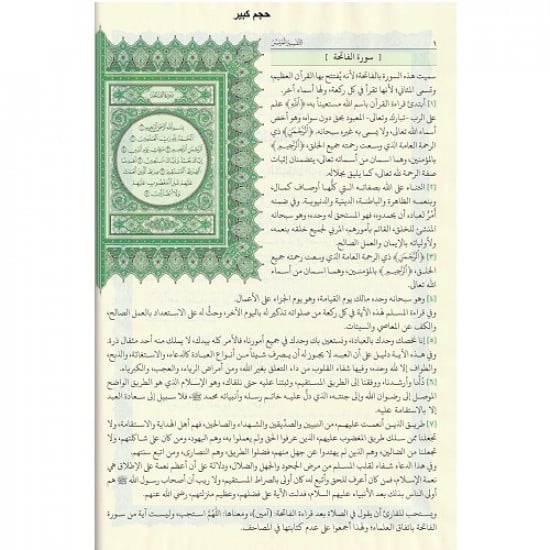 حجم كبير
١
التفسير الميسر
[ سورة الفاتحة ]
سورة الفاتحة
بسم الله الرحمن الرحيم
سميت هذه السورة بالفاتحة؛ لأنه يُفتتح بها القرآن العظيم،
وتسمى المثاني؛ لأنها تقرأ في كل ركعة، ولها أسماء أخر.
[١] أبتدئ قراءة القرآن باسم الله مستعيناً به، ﴿الله﴾ علم
على الرب -تبارك وتعالى- المعبود بحق دون سواه، وهو أخص
أسماء الله تعالى، ولا يسمى به غيره سبحانه. ﴿الرحمن﴾ ذي
الرحمة العامة الذي وسعت رحمته جميع الخلق، ﴿الرحيم﴾
بالمؤمنين، وهما اسمان من أسمائه تعالى، يتضمنان إثبات
صفة الرحمة لله تعالى، كما يليق بجلاله.
[٢] الثناء على الله بصفاته التي كلُّها أوصاف كمال،
وبنعمه الظاهرة والباطنة، الدينية والدنيوية، وفي ضمنه
أمْرٌ لعباده أن يحمدوه، فهو المستحق له وحده، وهو سبحانه
المنشئ للخلق، القائم بأمورهم، المربي لجميع خلقه بنعمه،
ولأوليائه بالإيمان والعمل الصالح.
[٣] ﴿الرحمن﴾ ذي الرحمة العامة الذي وسعت رحمته جميع
الخلق، ﴿الرحيم﴾ بالمؤمنين، وهما اسمان من أسماء
الله تعالى.
[٤] وهو سبحانه وحده مالك يوم القيامة، وهو يوم الجزاء على الأعمال.
وفي قراءة المسلم لهذه الآية في كل ركعة من صلواته تذكير له باليوم الآخر، وحثٌّ له على الاستعداد بالعمل الصالح،
والكف عن المعاصي والسيئات.
[٥] إنا نخصك وحدك بالعبادة، ونستعين بك وحدك في جميع أمورنا، فالأمر كله بيدك، لا يملك منه أحد مثقال ذرة.
وفي هذه الآية دليل على أن العبد لا يجوز له أن يصرف شيئاً من أنواع العبادة كالدعاء والاستغاثة والذبح،
والطواف إلا لله وحده، وفيها شفاء القلوب من داء التعلق بغير الله، ومن أمراض الرياء، والعجب، والكبرياء.
[٦] دُلَّنا وأرشدنا، ووفقنا إلى الطريق المستقيم، وثبتنا عليه حتى نلقاك، وهو الإسلام الذي هو الطريق الواضح
الموصل إلى رضوان الله وإلى جنته، الذي دلّ عليه خاتم رسله وأنبيائه محمد ﷺ، فلا سبيل إلى سعادة العبد
إلا بالاستقامة عليه.
[٧] طريق الذين أنعمت عليهم، من النبيين والصدّيقين والشهداء والصالحين، فهم أهل الهداية والاستقامة، ولا
تجعلنا ممن سلك طريق المغضوب عليهم، الذين عرفوا الحق ولم يعملوا به، وهم اليهود، ومن كان على شاكلتهم، ولا
تجعلنا من الضالين، وهم الذين لم يهتدوا عن جهل منهم، فضلوا الطريق، وهم النصارى، ومن اتبع سنتهم.
وفي هذا الدعاء شفاء لقلب المسلم من مرض الجحود والجهل والضلال، ودلالة على أن أعظم نعمة على الإطلاق هي
نعمة الإسلام، فمن كان أعرف للحق وأتبع له كان أولى بالصراط المستقيم، ولا ريب أن أصحاب رسول الله ﷺ هم
أولى الناس بذلك بعد الأنبياء عليهم السلام، فدلت الآية على فضلهم، وعظيم منزلتهم، رضي الله عنهم.
ويستحب للقارئ أن يقول في الصلاة بعد قراءة الفاتحة: (آمين)، ومعناها: اللَّهُمَّ استجب، وليست آية من سورة
الفاتحة باتفاق العلماء؛ ولهذا أجمعوا على عدم كتابتها في المصاحف.